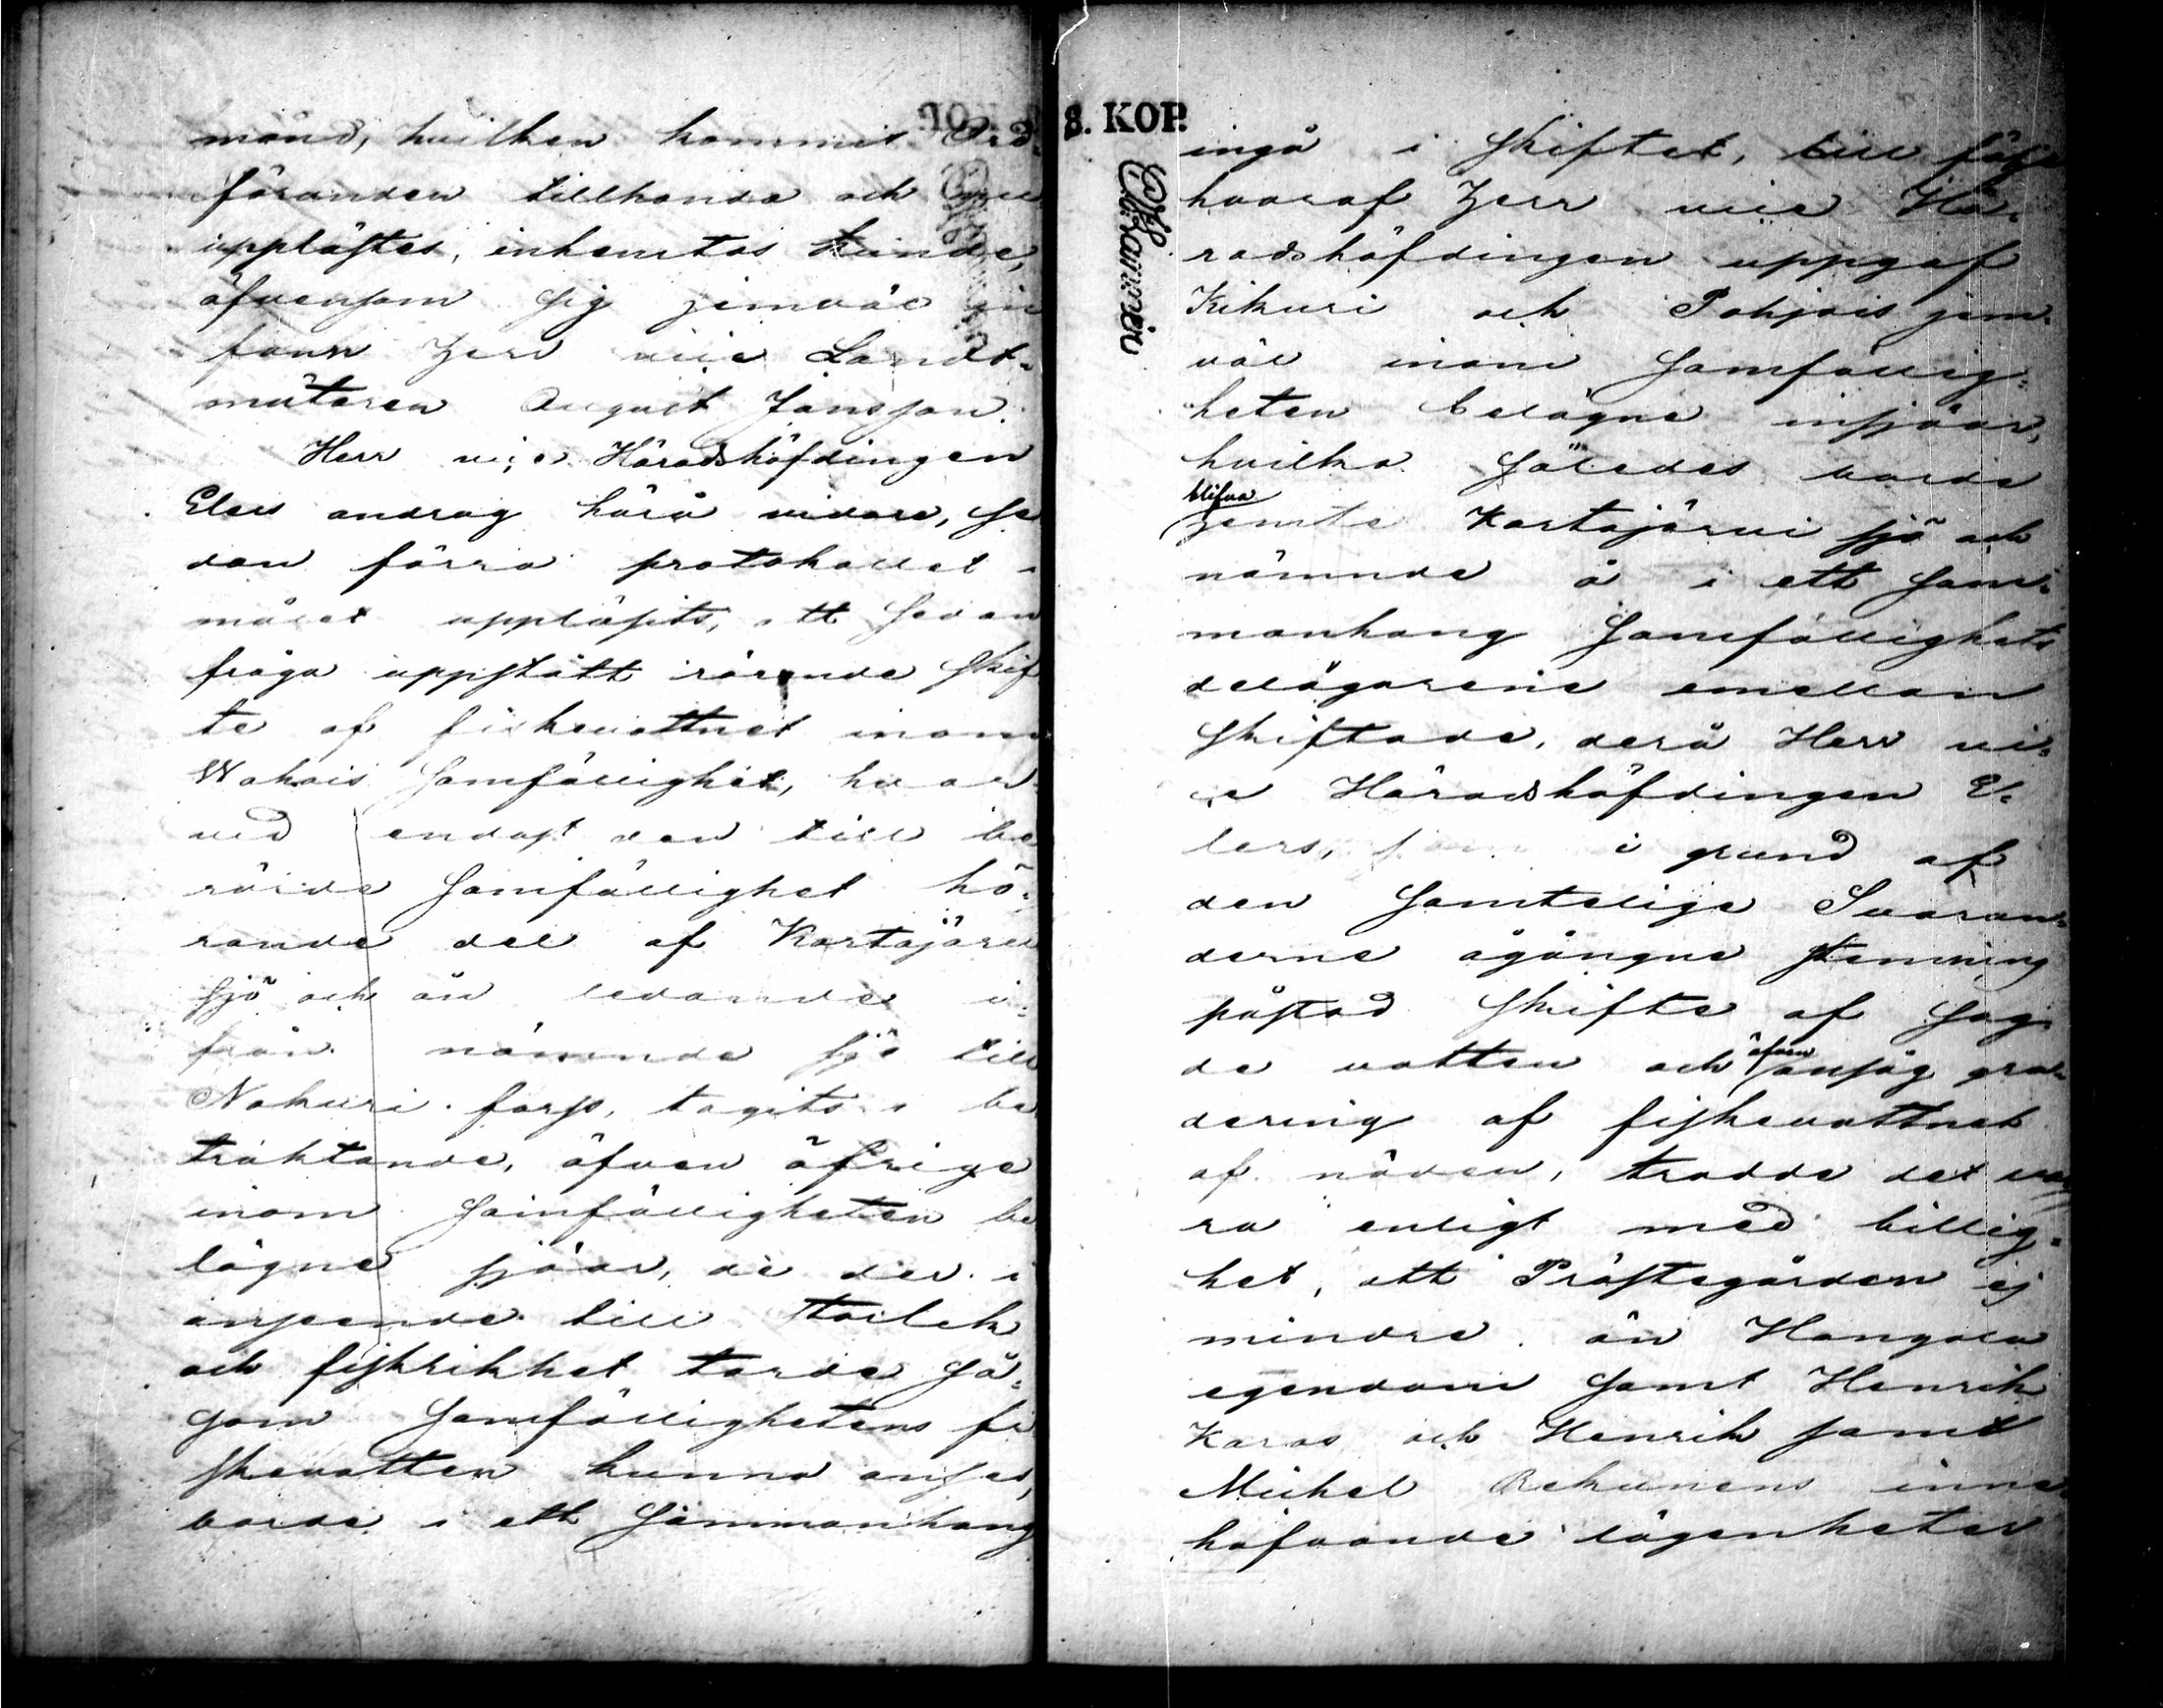 mänd, hvilken kommit Ord-
föranden tillhanda och nu
upplästes, inhemtas kunde,
äfvensom sig jemväl in
fann Herr vice Landt-
mätaren August Jansson.
Herr vice Häradshöfdingen
Elers androg härå vidare, se
dan förra protokollet i
målet uppläsits, att sedan
fråga uppstått rörande skif
te af fiskevattnet inom
Wahois samfällighet, hvar
ved endast den till be
rörda samfällighet hö-
rande del af Kartajärvi
sjö och än ledande i-
från nämnde sjö till
Nakuri fors, tagits i be
traktande, äfven öfrige
inom samfälligheten be
lägne sjöar, de der i
anseende till storlek
och fiskrikhet torde så-
som samfällighetens fi
skevatten kunna anses,
borde i ett sammanhang
8. KOP.
ingå i skiftet, till följe
hvaraf Herr vice Hä-
radshöfdingen uppgaf
Kikuri och Pohjois jem-
väl inom samfällig-
heten belägne insjöar,
hvilka således borde
blifva
jemte Kartajärvi sjö och
nämnde å i ett sam-
manhang samfällighets
delägarene emellan
skiftade, derå Herr vi-
ce Häradshöfdingen E-
lers, som i grund af
den samtelige Svaran-
derne ågångne stemning
påstod skifte af sag-
de vatten och äfven ansåg gra-
dering af fiskevattnet
af nöden, trodde det va-
ra enligt med billig-
het, att Prästegården ej
mindre än Hangala
egendom samt Henrik
Karas och Henrik samt
Mickel Rekunens inne-
hafvande lägenheter